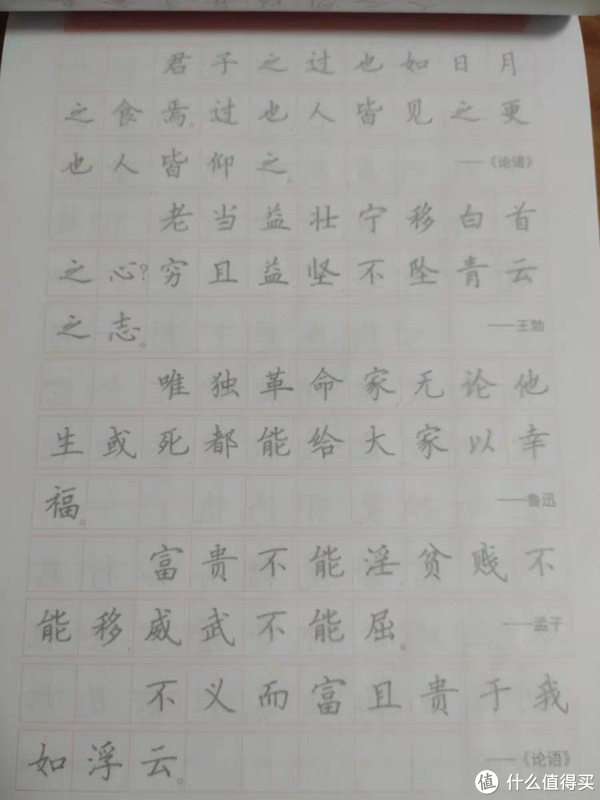 君子之过也如日月
之食焉。过也人皆见之更
也人皆仰之。 ——《论语》
老当益壮宁移白首
之心?穷且益坚不坠青云
之志。 ——王勃
唯独革命家无论他
生或死都能给大家以幸
福。 ——鲁迅
富贵不能淫贫贱不
能移威武不能屈。 ——孟子
不义而富且贵于我
如浮云。 ——《论语》
值 什么值得买